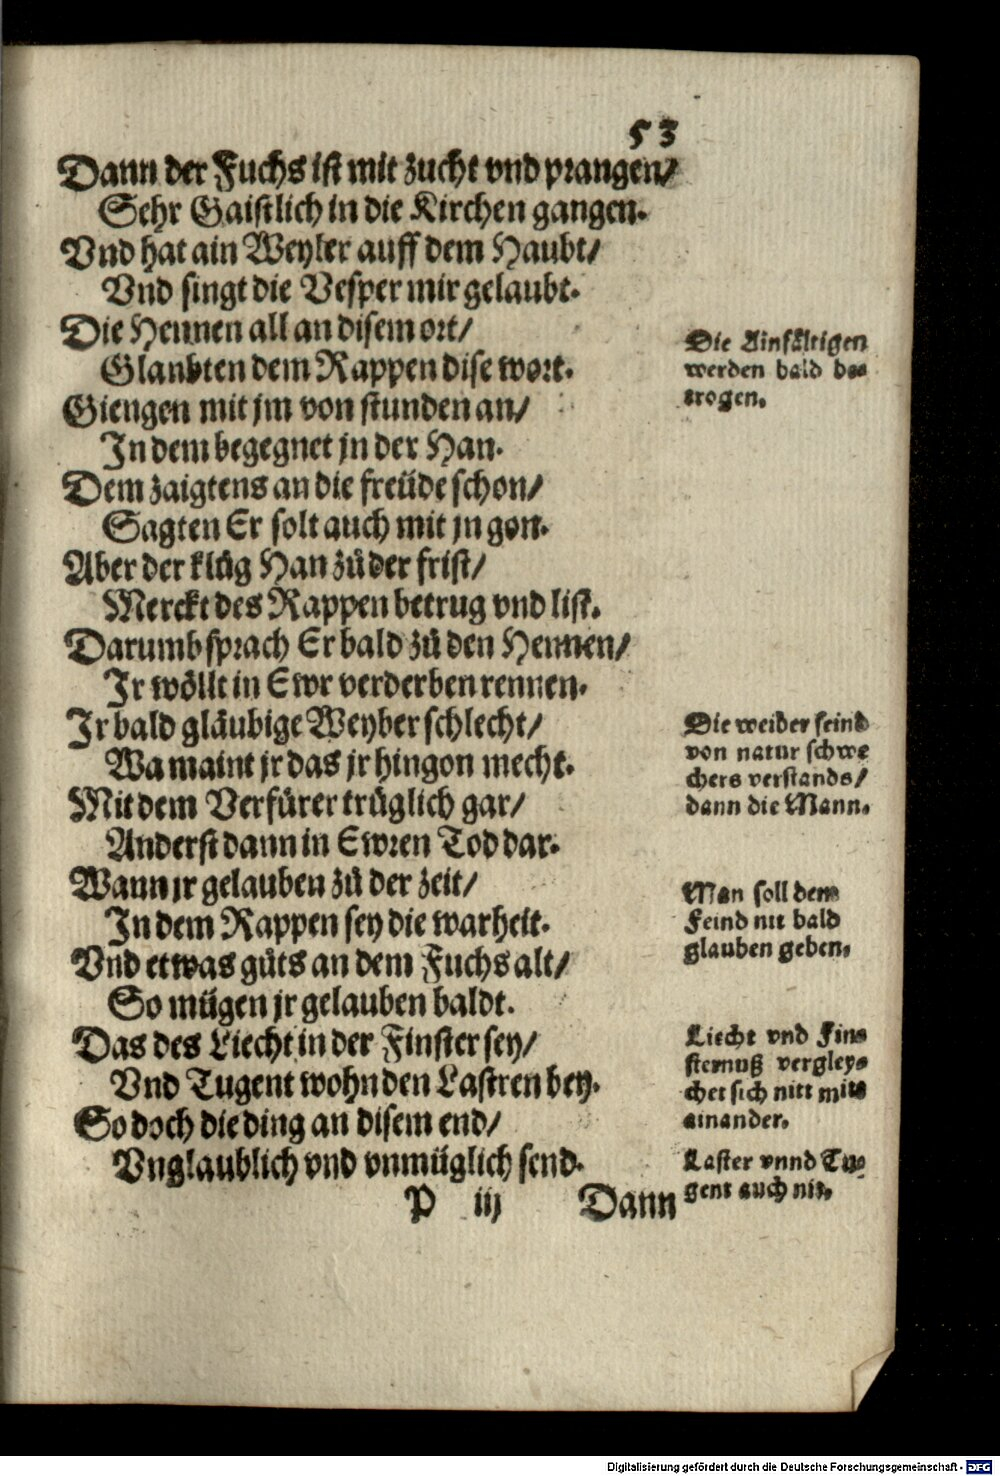 53
Dann der Fuchs ist mit zucht vnd prangen/
Sehr Gaistlich in die Kirchen gangen.
Vnd hat ain Weyler auff dem Haubt/
Vnd singt die Vesper mir gelaubt.
Die Hennen all an disem ort/
Glaubten dem Rappen dise wort.
Giengen mit jm von stunden an/
In dem begegnet jn der Han.
Dem zaigtens an die freüde schon/
Sagten Er solt auch mit jn gon.
Aber der klůg Han zů der frist/
Merckt des Rappen betrug vnd list.
Darumb sprach Er bald zů den Hennen/
Jr wöllt in Ewr verderben rennen.
Jr bald gläubige Weyber schlecht/
Wa maint jr das jr hingon mecht.
Mit dem Verfürer trüglich gar/
Anderst dann in Ewren Tod dar.
Wann jr gelauben zů der zeit/
In dem Rappen sey die warheit.
Vnd etwas gůts an dem Fuchs alt/
So mügen jr gelauben baldt.
Das des Liecht in der Finster sey/
Vnd Tugent wohn den Lastren bey.
So doch die ding an disem end/
Vnglaublich vnd vnmüglich send.
P iij Dann
Die Ainfältigen
werden bald be-
trogen.
Die weiber seind
von natur schwe
chers verstands/
dann die Mann.
Man soll dem
Feind nit bald
glauben geben.
Liecht vnd Fin-
sternuß vergley-
chet sich nitt mitt
ainander.
Laster vnnd Tu-
gent auch nit.
Digitalisierung gefördert durch die Deutsche Forschungsgemeinschaft - DFG